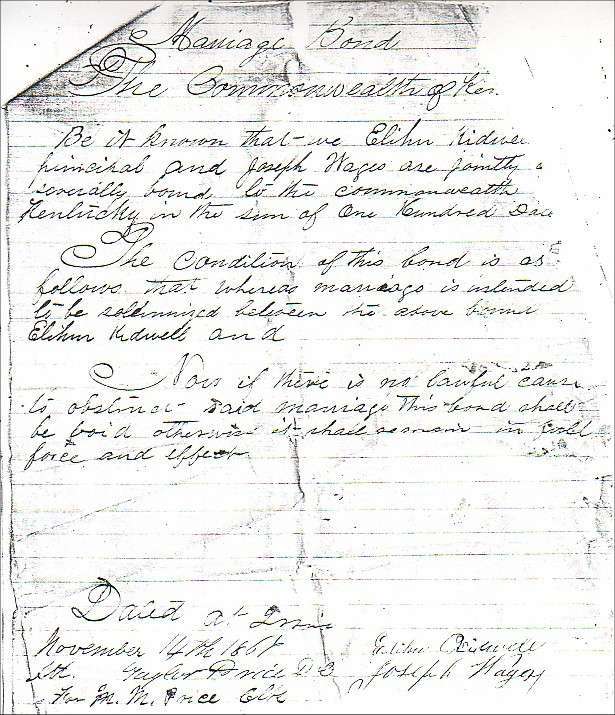 Marriage Bond
The Commonwealth of Ken
Be it known that we Elihu Kidwe
principal and Joseph Wages are jointly
severally bound to the commonwealth
Kentucky in the sum of One Hundred
The Condition of this bond is as
follows that whereas marriage is intended
to be solemnized between the above bound
Elihu Kidwell and
Now if there is no lawful cause
to obstruct said marriage this bond shall
be void otherwise it shall remain in full
force and effect
Dated at
November 14th 1861 Elihu Kidwell
Att. Taylor Price D C Joseph Wages
For M. M. Price Clk